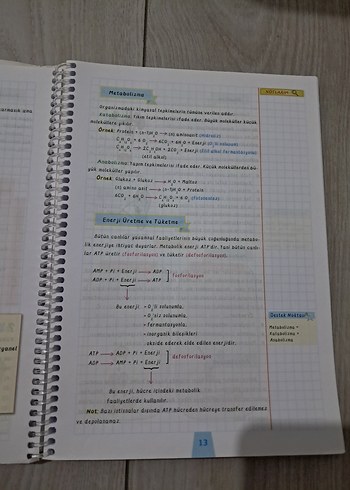 Metabolizma
Organizmadaki kimyasal tepkimelerin tümüne verilen addır.
Katabolizma: Yıkım tepkimelerini ifade eder. Büyük moleküller küçük
moleküllere yıkılır.
Örnek: Protein + (n-1)H₂O → (n) aminoasit (Hidroliz)
C₆H₁₂O₆ + 6O₂ → 6CO₂ + 6H₂O + Enerji (O₂'li solunum)
C₆H₁₂O₆ → 2C₂H₅OH + 2CO₂ + Enerji (Etil alkol fermantasyonu)
(etil alkol)
Anabolizma: Yapım tepkimelerini ifade eder. Küçük moleküllerden bü-
yük moleküller yapılır.
Örnek: Glukoz + Glukoz → H₂O + Maltoz
(n) amino asit → (n-1)H₂O + Protein
6CO₂ + 6H₂O → C₆H₁₂O₆ + 6O₂ (Fotosentez)
(glukoz)
Enerji Üretme ve Tüketme
Bütün canlılar yaşamsal faaliyetlerinin büyük çoğunluğunda metabo-
lik enerjiye ihtiyaç duyarlar. Metabolik enerji ATP'dir. Tüm bütün canlı-
lar ATP üretir (fosforilasyon) ve tüketir (defosforilasyon).
AMP + Pi + Enerji → ADP
ADP + Pi + Enerji → ATP
fosforilasyon
Bu enerji, • O₂'li solunumla,
• O₂'siz solunumla,
• fermantasyonla,
• inorganik bileşikleri
okside ederek elde edilen enerjidir.
ATP → ADP + Pi + Enerji
ADP → AMP + Pi + Enerji
defosforilasyon
Bu enerji, hücre içindeki metabolik
faaliyetlerde kullanılır.
Not: Bazı istisnalar dışında ATP hücreden hücreye transfer edilemez
ve depolanamaz.
Destek Noktası
Metabolizma =
Katabolizma +
Anabolizma
13